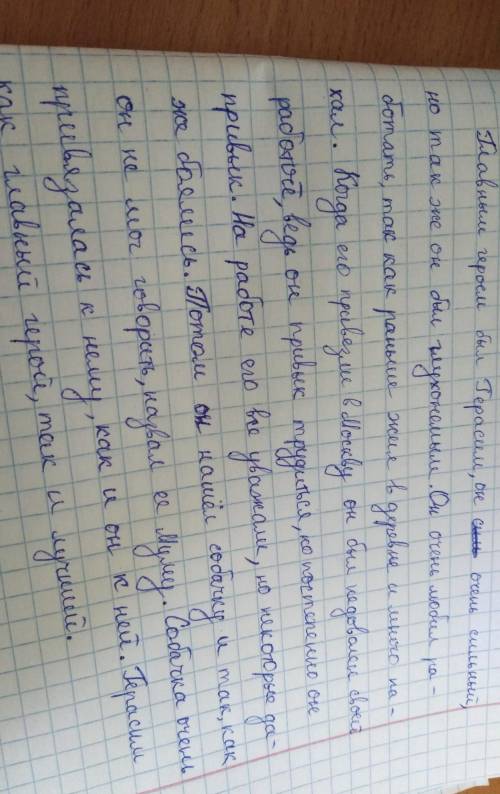 Главным героем был Герасим, он очень сильный,
но так же он был глухонемым. Он очень любил ра-
ботать, так как раньше жил в деревне и много па-
хал. Когда его привезли в Москву он был недоволен своей
работой, ведь он привык трудиться, но постепенно он
привык. На работе его все уважали, но некоторые да-
же боялись. Потом он нашёл собачку и так, как
он не мог говорить, назвал её Муму. Собачка очень
привязалась к нему, как и он к ней. Герасим
как главный герой, так и лучший.